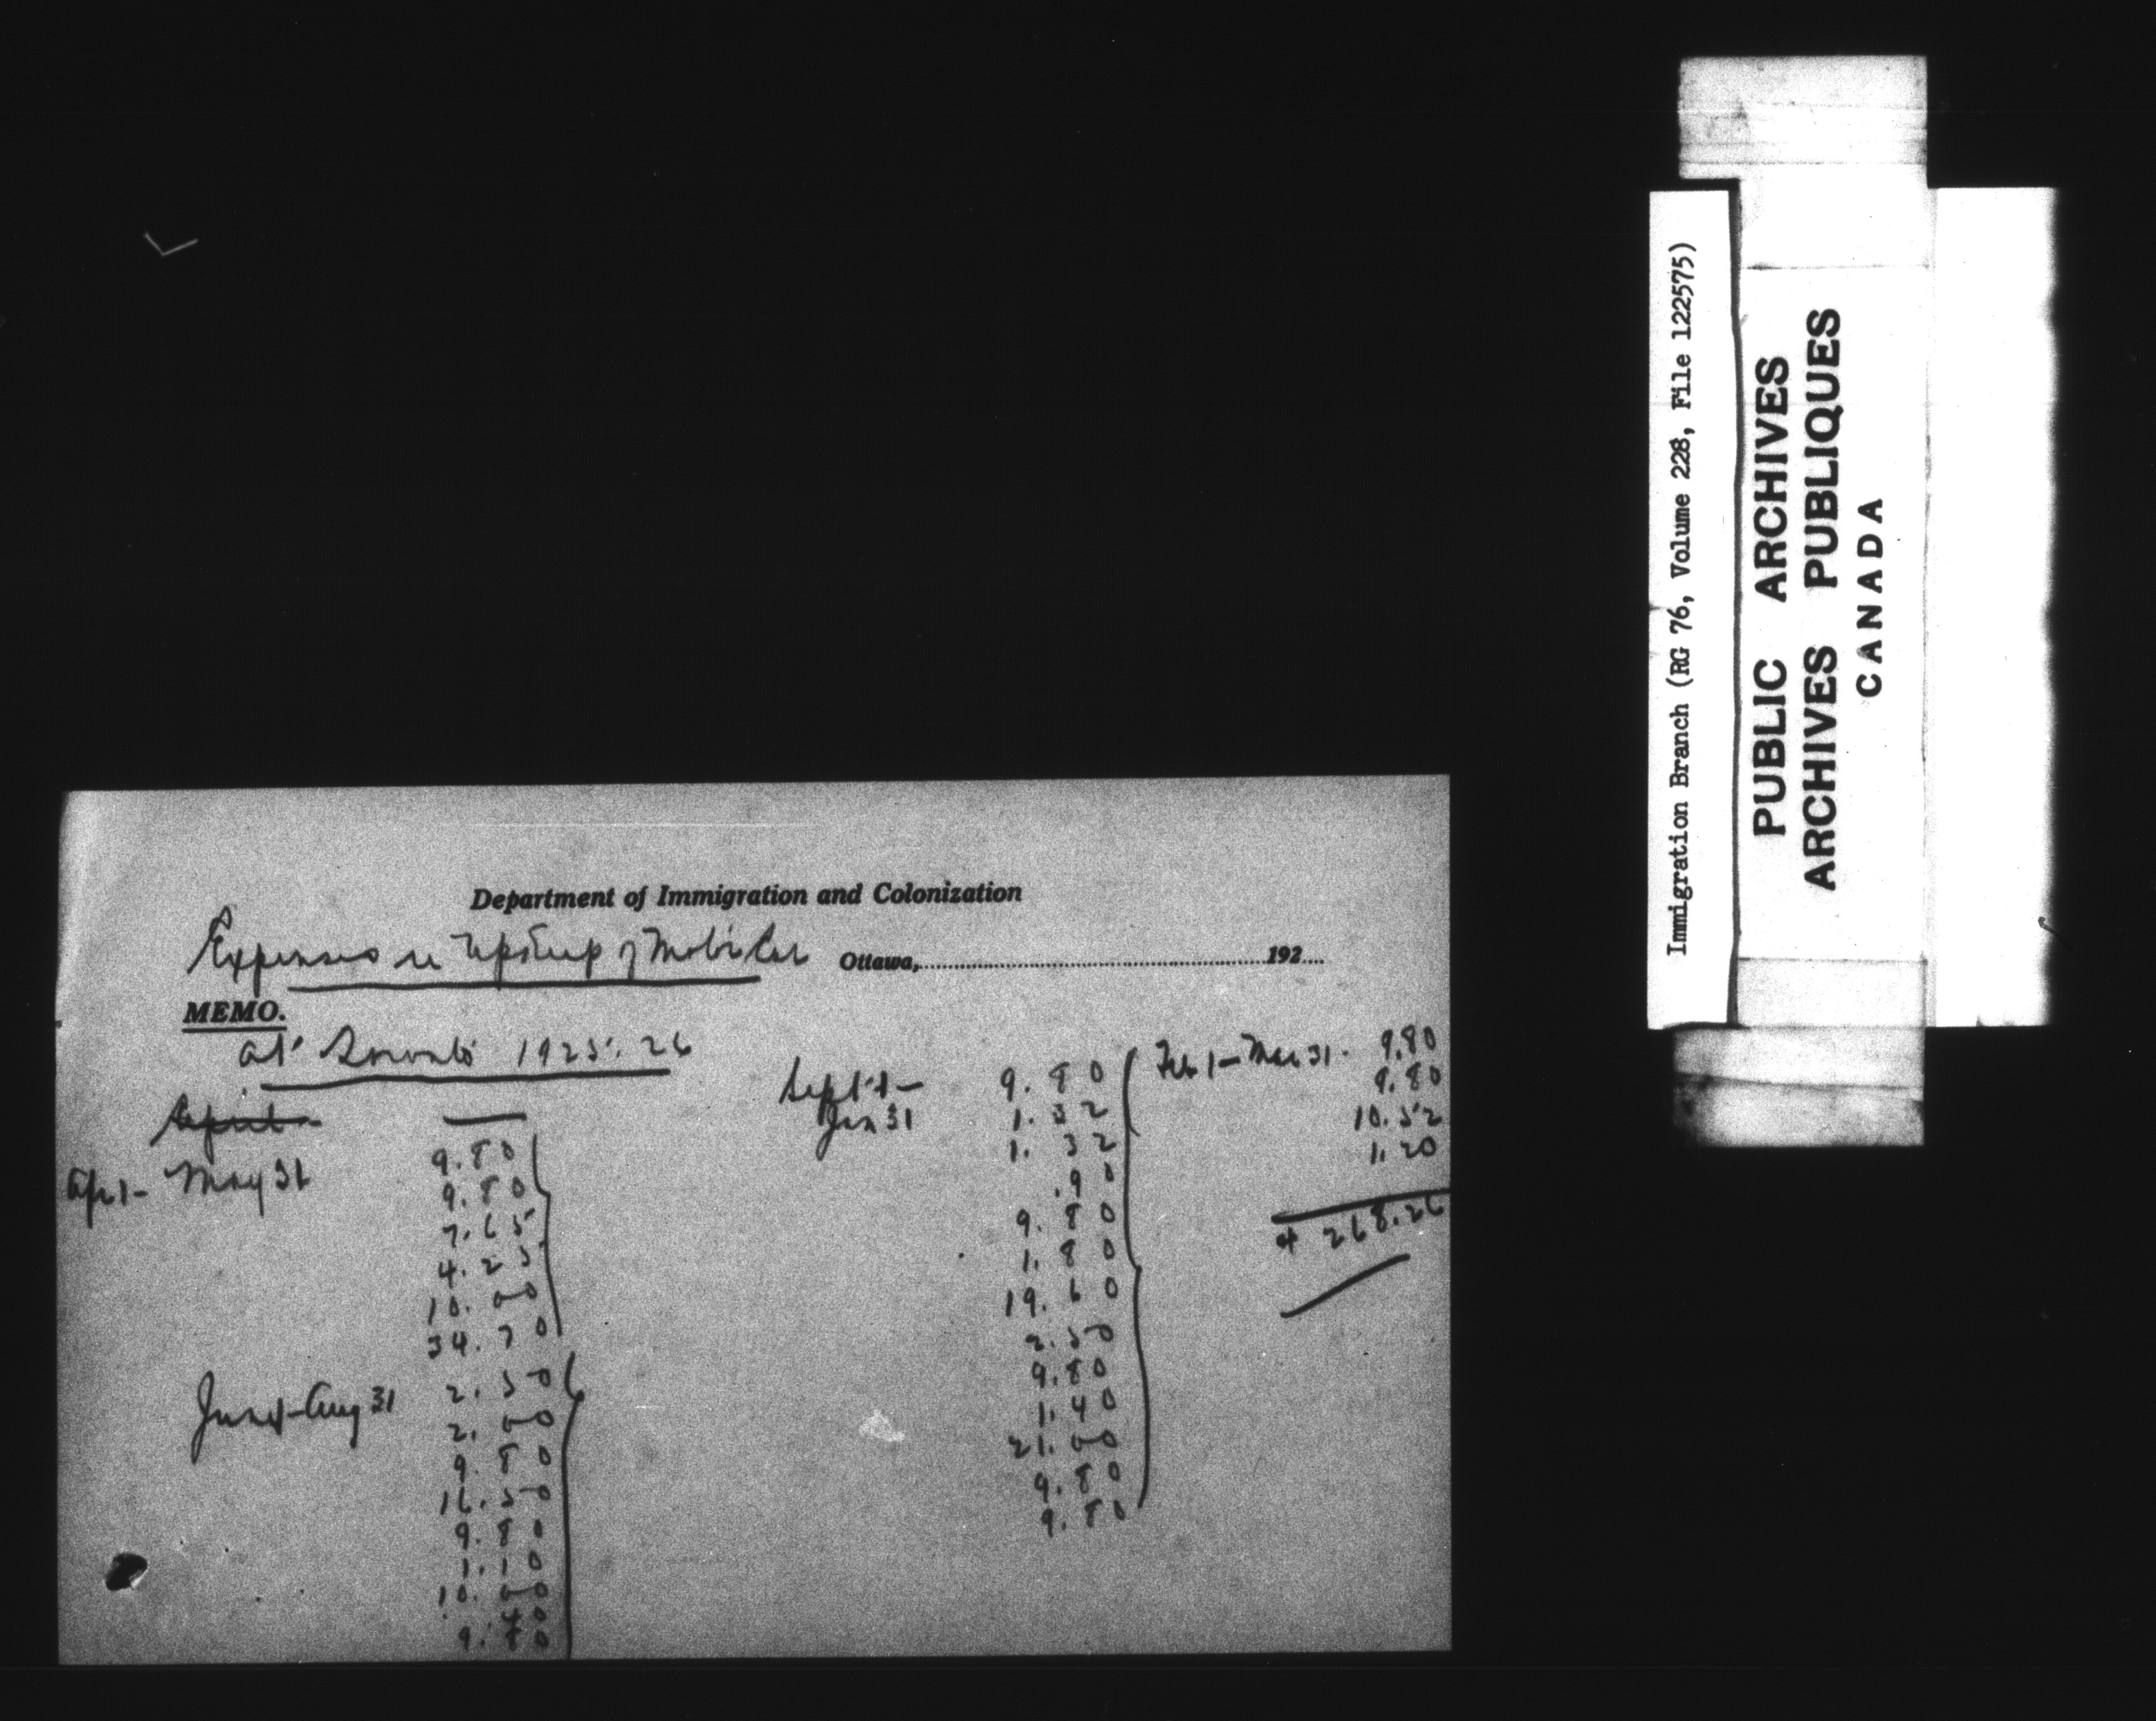 Department of Immigration and Colonization
Expenses re Upkeep of Motor Car
Ottawa, 192
MEMO.
at Toronto 1925-26
April
Apr 1 - May 31
9.80
9.80
7.65
4.25
10.00
34.70
June 1 - Aug 31
2.50
2.00
9.80
16.50
9.80
1.10
10.00
.40
9.80
Sept 1 -
Jan 31
9.80
1.32
1.32
.90
9.80
1.80
19.60
2.50
9.80
1.40
21.00
9.80
9.80
Feb 1 - Mar 31.
9.80
9.80
10.52
1.20
$ 268.26
Immigration Branch (RG 76, Volume 228, File 122575)
PUBLIC ARCHIVES
ARCHIVES PUBLIQUES
CANADA